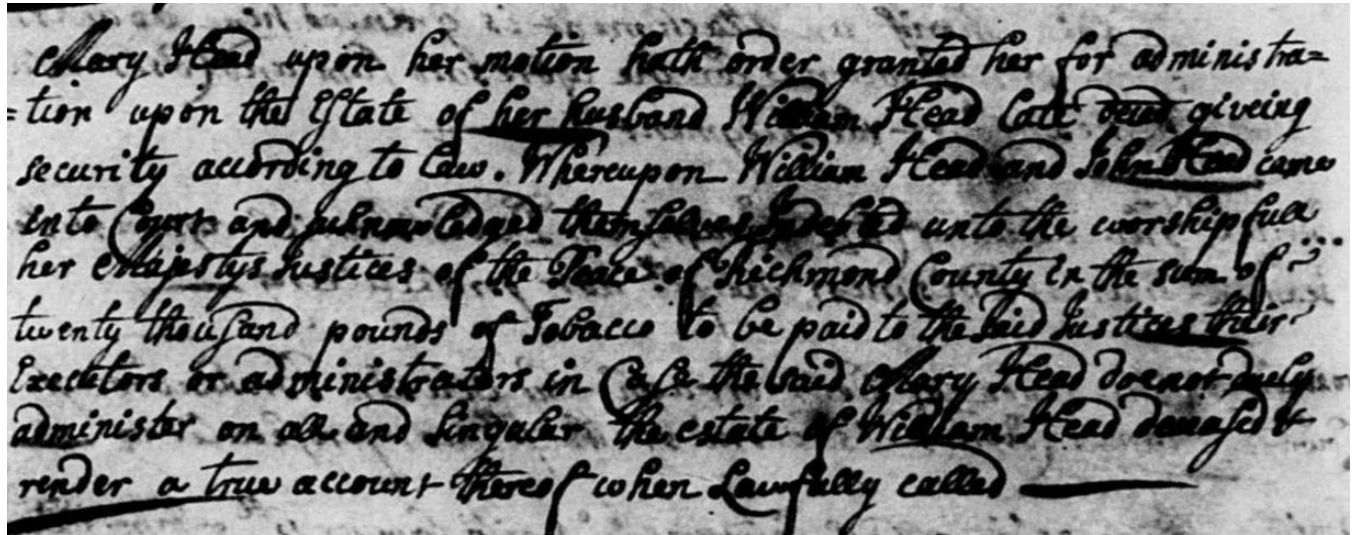 Mary Head upon her motion hath order granted her for administra=
=tion upon the Estate of her husband William Head late decd giveing
security according to law. Whereupon William Head and John Head came
into Court and acknowledged themselves Indebted unto the worshipfull
her Majestys Justices of the Peace of Richmond County in the sum of
twenty thousand pounds of Tobacco to be paid to the said Justices their
Executors or administrators in Case the said Mary Head doe not duely
administer on all and Singular the estate of William Head deceased &
render a true account thereof when Lawfully called